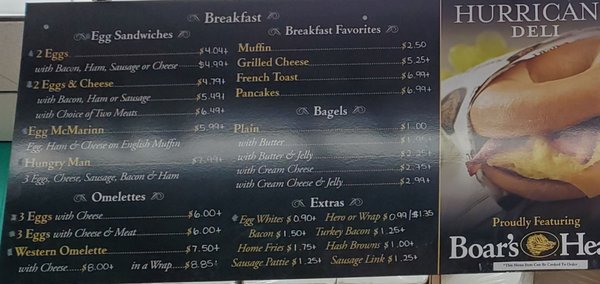 Breakfast
Egg Sandwiches
2 Eggs $4.04+
with Bacon, Ham, Sausage or Cheese $4.99+
2 Eggs & Cheese $4.79+
with Bacon, Ham or Sausage $5.49+
with Choice of Two Meats $6.49+
Egg McMarinn $5.99+
Egg, Ham & Cheese on English Muffin
Hungry Man $7.99+
3 Eggs, Cheese, Sausage, Bacon & Ham
Omelettes
3 Eggs with Cheese $6.00+
3 Eggs with Cheese & Meat $6.00+
Western Omelette $7.50+
with Cheese $8.00+ in a Wrap $8.85+
Breakfast Favorites
Muffin $2.50
Grilled Cheese $5.25+
French Toast $6.99+
Pancakes $6.99+
Bagels
Plain $1.00
with Butter $1.95+
with Butter & Jelly $2.75+
with Cream Cheese $2.75+
with Cream Cheese & Jelly $2.99+
Extras
Egg Whites $0.90+ Hero or Wrap $0.99/$1.35
Bacon $1.50+ Turkey Bacon $1.25+
Home Fries $1.75+ Hash Browns $1.00+
Sausage Pattie $1.25+ Sausage Link $1.25+
HURRICAN
DELI
Proudly Featuring
Boar's Hea
*This Menu Item Can Be Cooked To Order